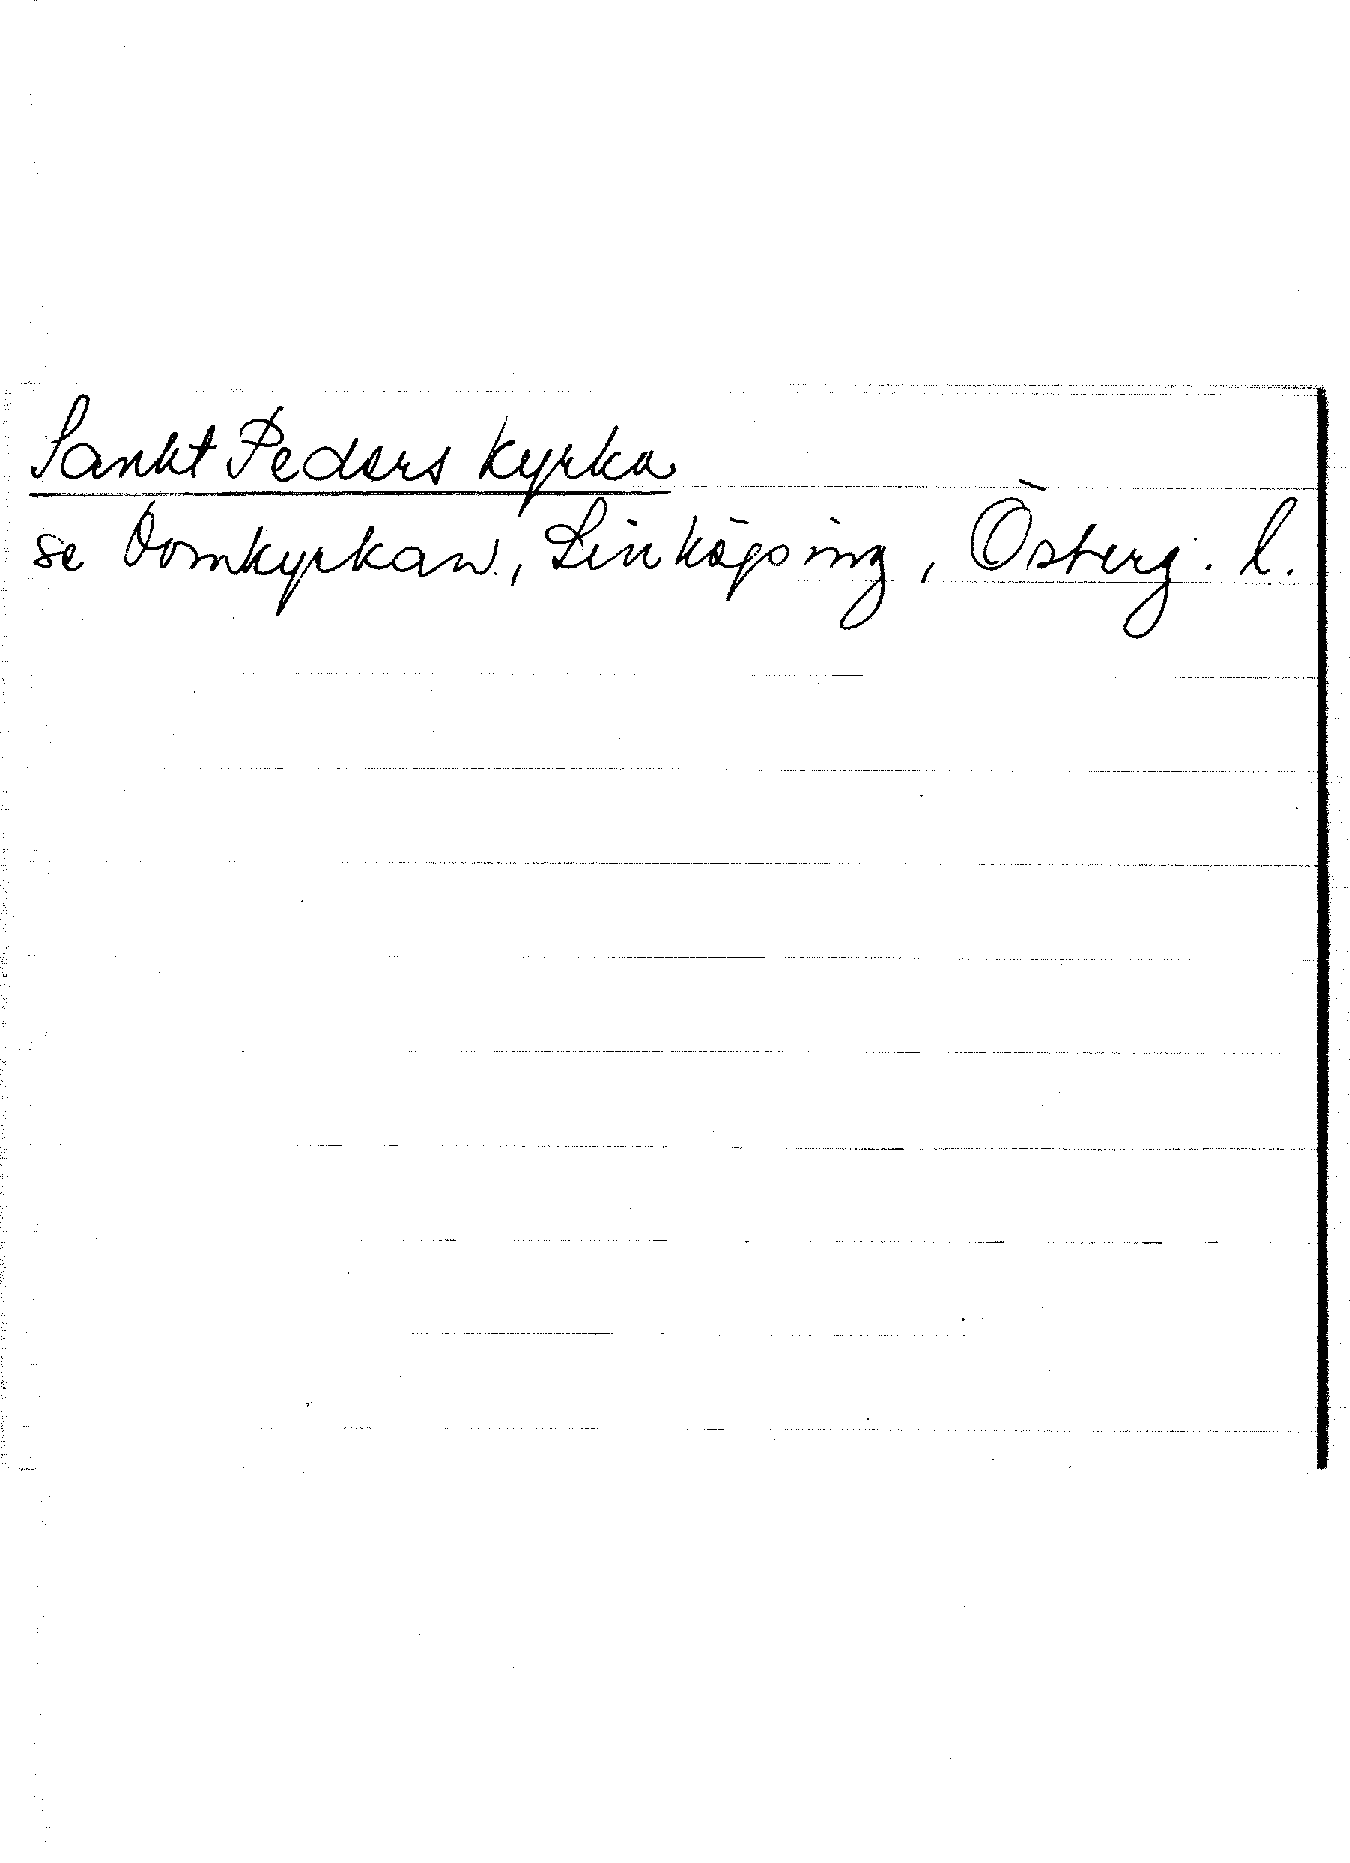 Sankt Peders kyrka
se Domkyrkan, Linköping, Österg. l.